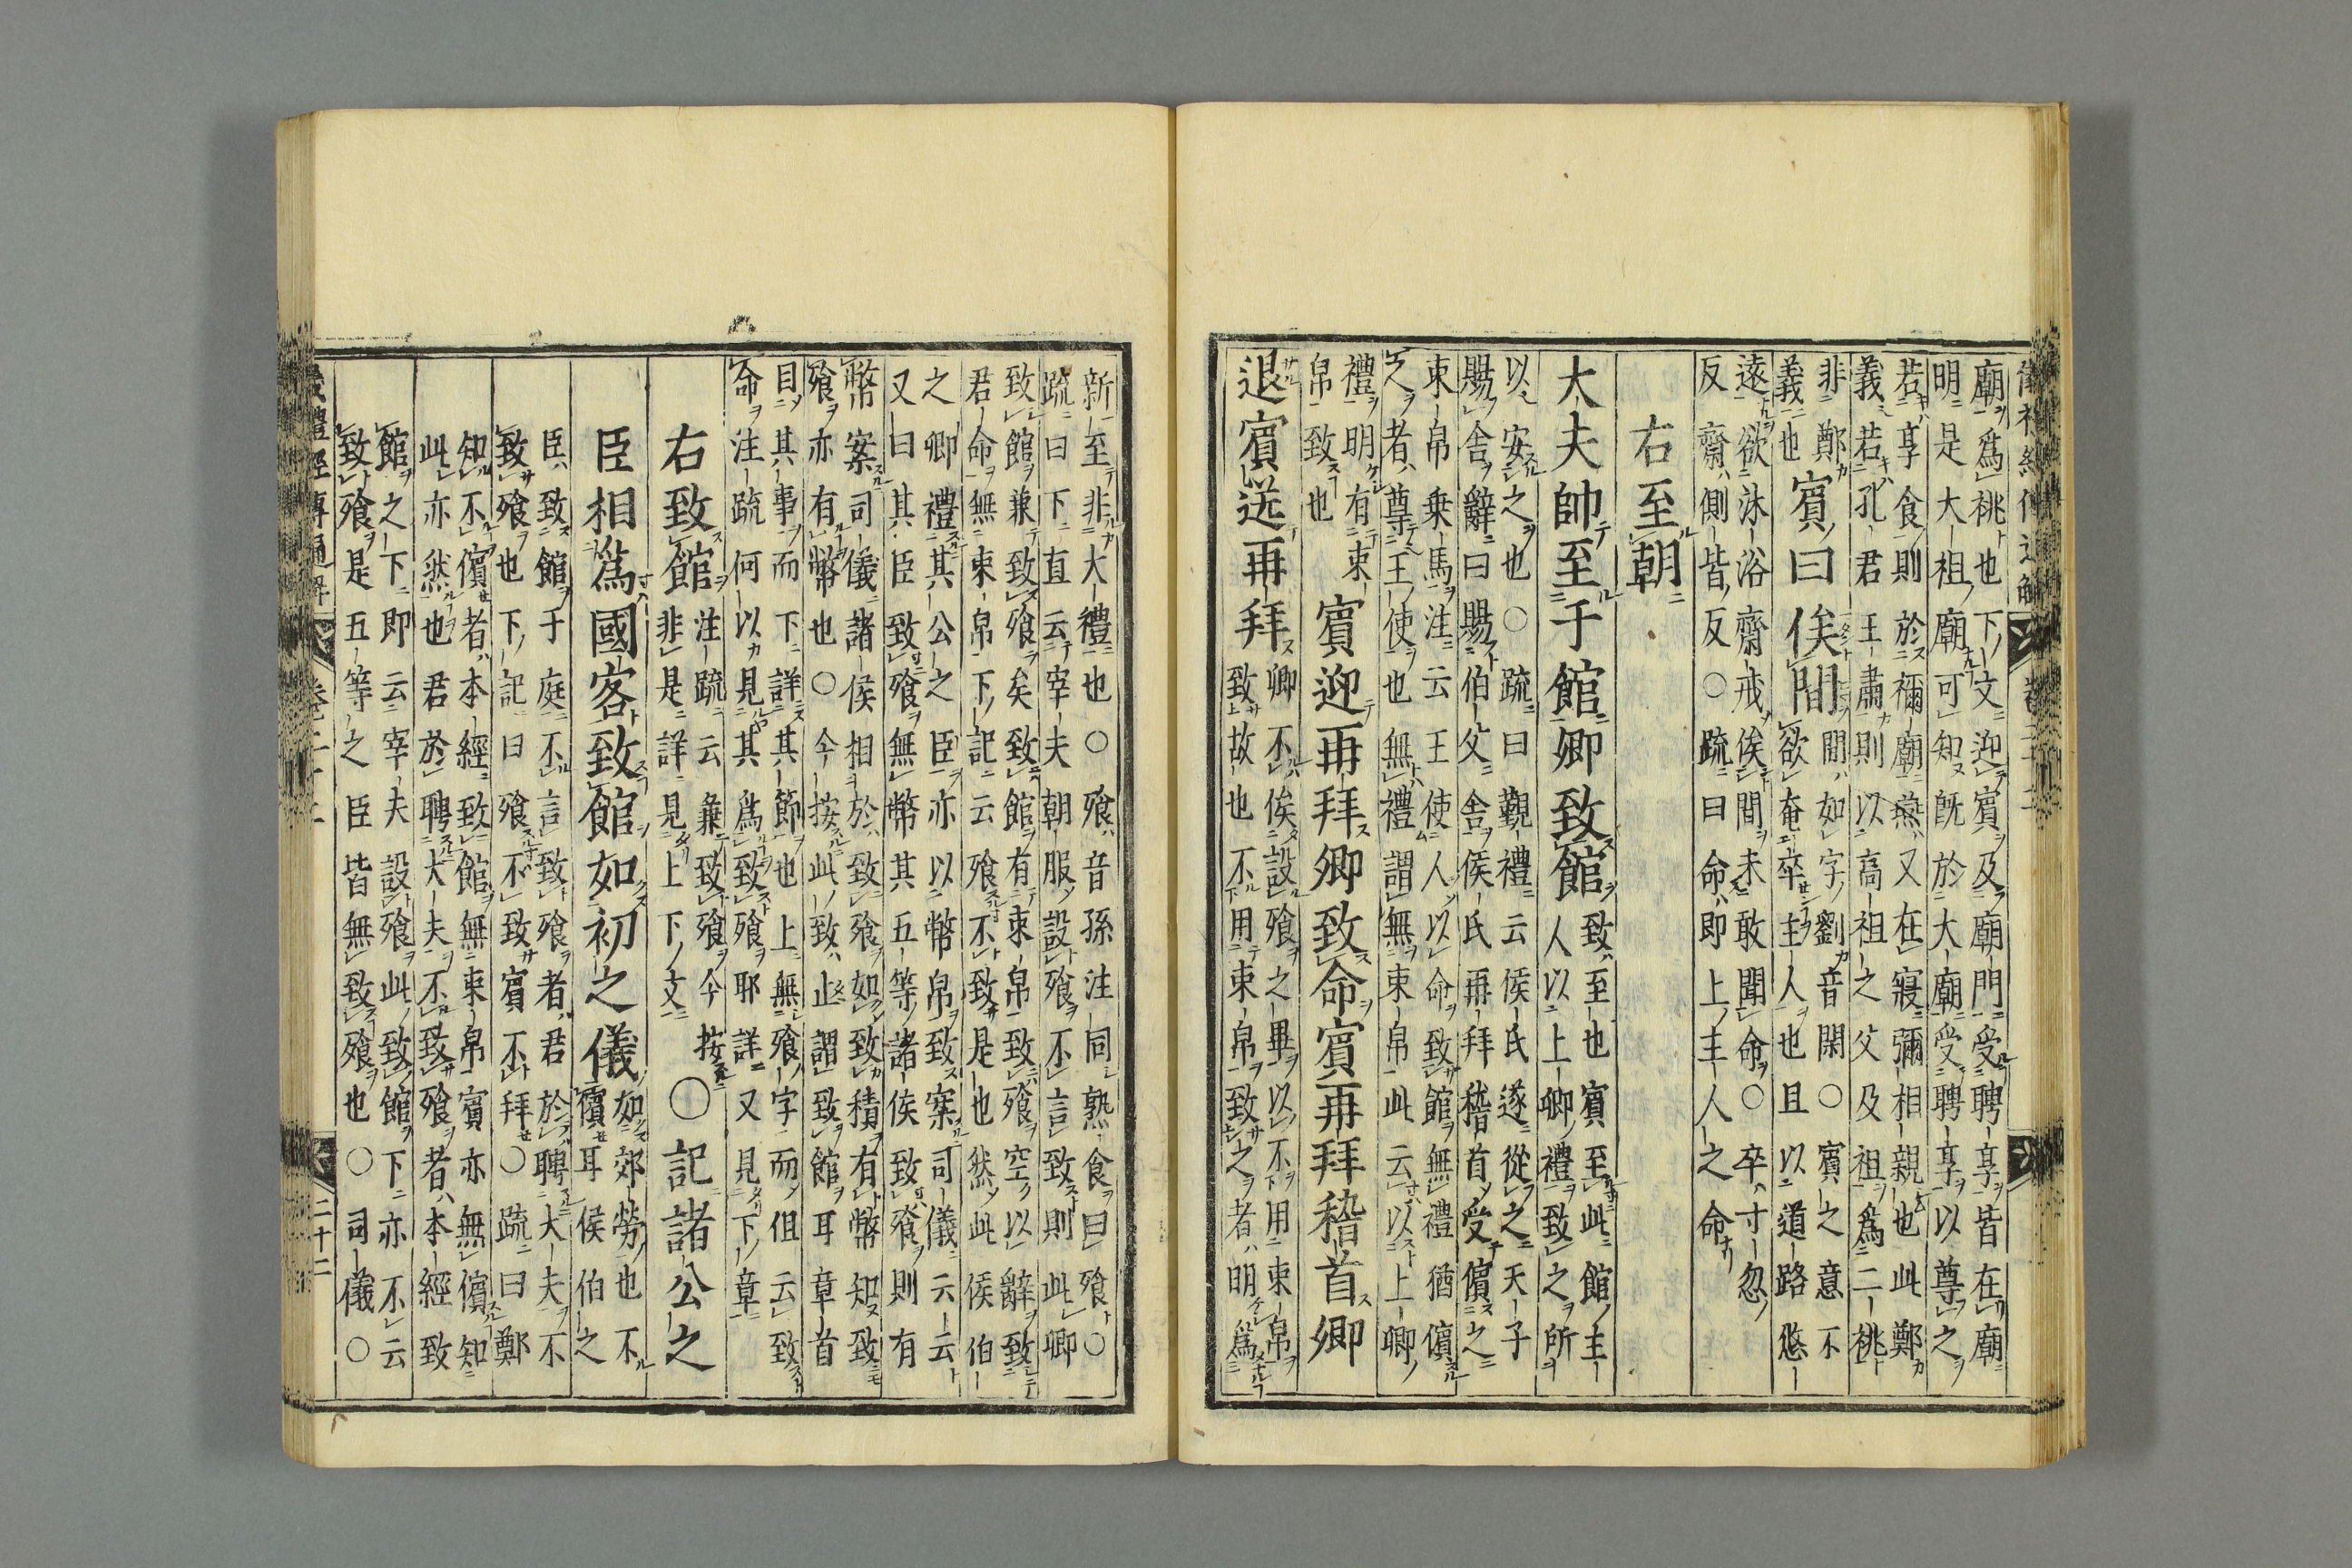 廟爲祧也下文迎賓及廟門受聘享皆在廟
明是大祖廟可知既於大廟受聘享以尊之
若享食則於禰廟燕又在寢彌相親也此鄭
義若孔君王肅則以高祖之父及祖爲二祧
非鄭義也
賓曰俟間
間如字劉音閑○賓之意不
欲奄卒主人也且以道路悠
遠欲沐浴齋戒俟間未敢聞命○卒寸忽
反齋側皆反○疏曰命即上主人之命
右至朝
大夫帥至于館卿致館
致至也賓至此館主
人以上卿禮致之所
以安之也○疏曰覲禮云侯氏遂從之天子
賜舍辭曰賜伯父舍侯氏再拜稽首受儐之
束帛乗馬注云王使人以命致館無禮猶儐
之者尊王使也無禮謂無束帛此云以上卿
禮明有束
帛致也
賓迎再拜卿致命賓再拜稽首卿
退賓送再拜
卿不俟設飧之畢以不用束帛
致故也不用束帛致之者明爲
新至非大禮也○飧音孫注同熟食曰飧○
疏曰下直云宰夫朝服設飧不言致則此卿
致館兼致飧矣致館有束帛致飧空以辭致
君命無束帛下記云飧不致是也然此侯伯
之卿禮其公之臣亦以幣帛致案司儀云云
又曰其臣致飧無幣其五等諸侯致飧則有
幣案司儀諸侯相於致飧如致積有幣知致
飧亦有幣也○今按此致止謂致館耳章首
目其事而下詳其節也上無飧字而但云致
命注疏何以見其爲致飧耶詳又見下章
右致館
注疏云兼致飧今按
非是詳見上下文
○記諸公之
臣相爲國客致館如初之儀
如郊勞也不
儐耳侯伯之
臣致館于庭不言致飧者君於聘大夫不
致飧也下記曰飧不致賓不拜○疏曰鄭
知不儐者本經致館無束帛賓亦無儐知
此亦然也君於聘大夫不致飧者本經致
館之下即云宰夫設飧此致館下亦不云
致飧是五等之臣皆無致飧也○司儀○
二十二